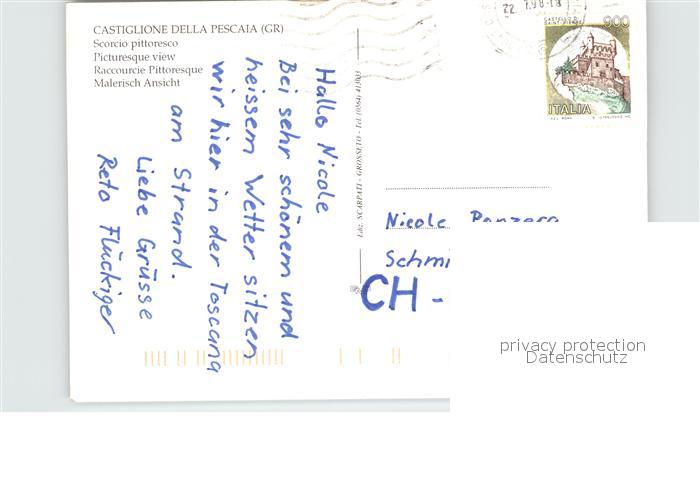 CASTIGLIONE DELLA PESCAIA (GR)
Scorcio pittoresco
Picturesque view
Raccourcie Pittoresque
Malerisch Ansicht
Hallo Nicole
Bei sehr schönem und
heissem Wetter sitzen
wir hier in der Toscana
am Strand.
Liebe Grüsse
Reto Flückiger
Ediz. SCARPATI - GROSSETO - Tel. (0564)
22. 7.98-18
CASTELLO DI
900
ITALIA
Nicole
Schmi
CH -
privacy protection
Datenschutz